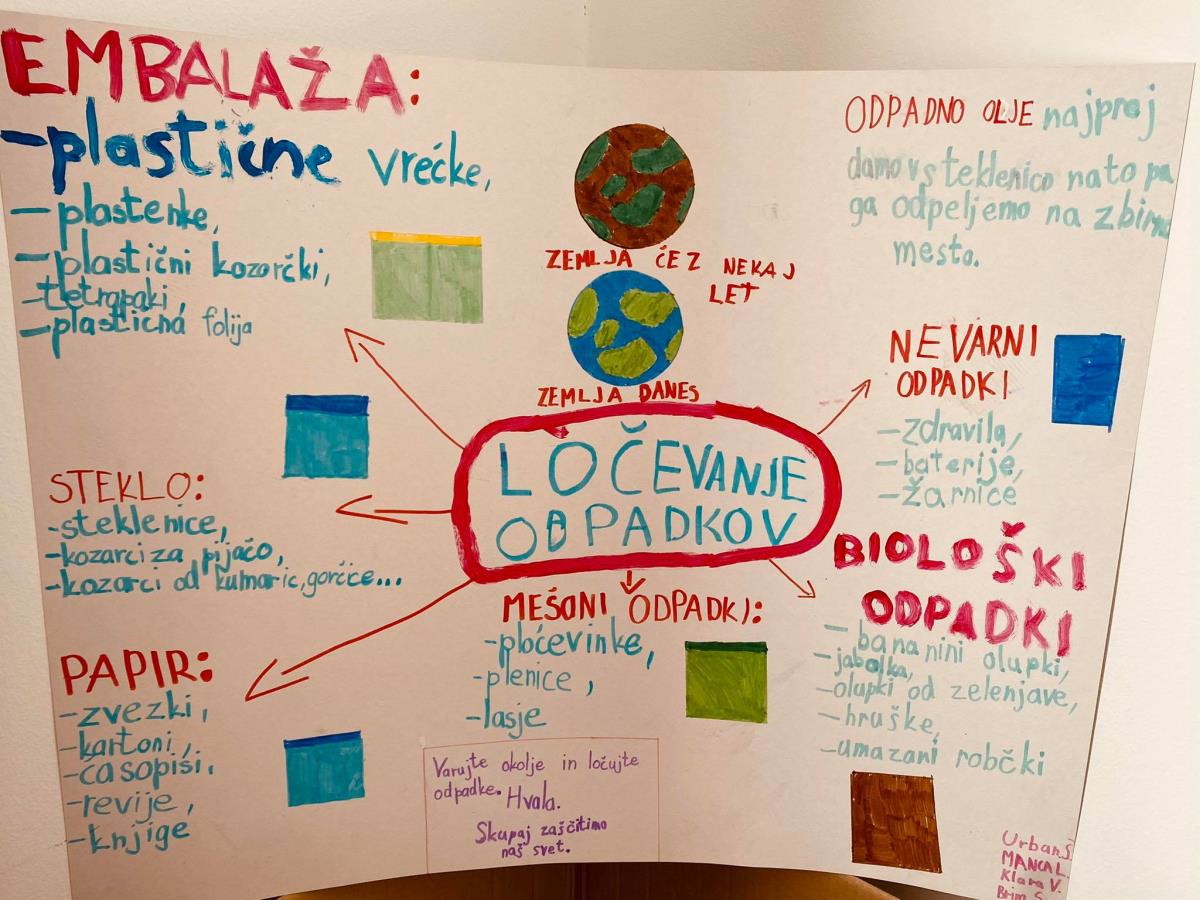 EMBALAŽA:
-plastične vrečke,
- plastenke,
- plastični kozorčki,
-tetrapaki,
- plastična folija
ZEMLJA ČEZ NEKAJ
LET
ZEMLJA DANES
ODPADNO OLJE najprej
damo v steklenico nato pa
ga odpeljemo na zbirno
mesto.
NEVARNI
ODPADKI
-zdravila,
-baterije,
-žarnice
LOČEVANJE
ODPADKOV
STEKLO:
-steklenice,
-kozarci za pijačo,
-kozarci od kumaric, gorčice...
PAPIR:
-zvezki,
-kartoni,
-časopisi.
-revije,
-knjige
MEŠANI ODPADKI:
-pločevinke,
-plenice,
-lasje
BIOLOŠKI
ODPADKI
-bananini olupki,
-jabolka,
-olupki od zelenjave,
-hruške,
-umazani robčki
Varujte okolje in ločujte
odpadke. Hvala.
Skupaj zaščitimo
naš svet.
Urban Š.
MANCA L.
Klara V.